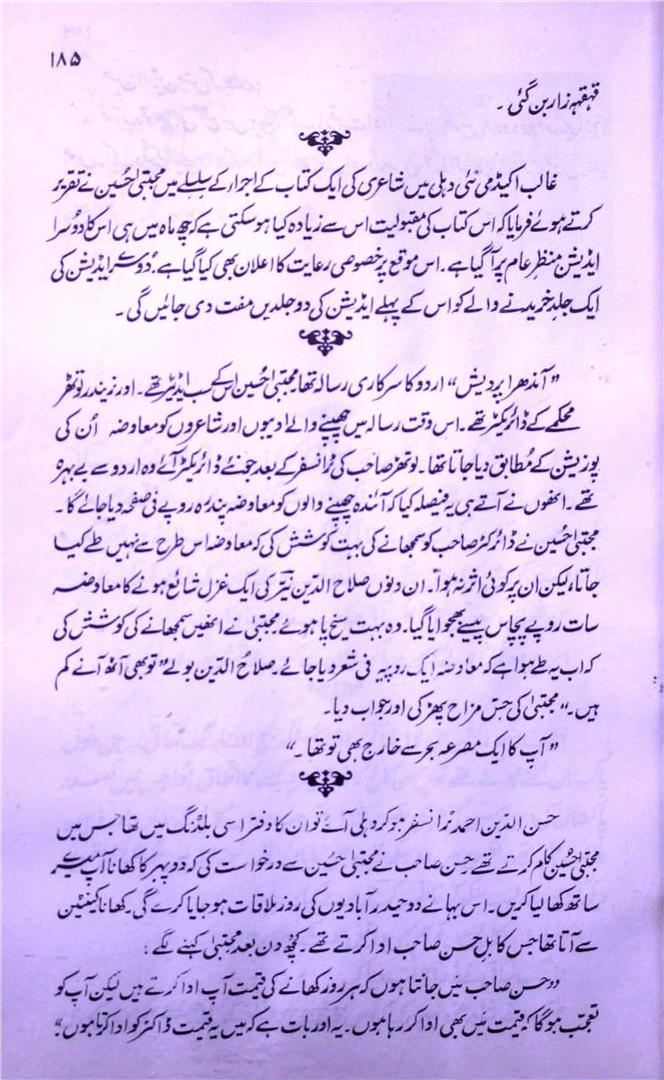 ۱۸۵
قہقہہ زار بن گئی ۔
غالب اکیڈمی نئی دہلی میں شاعری کی ایک کتاب کے اجراء کے سلسلے میں مجتبیٰ حسین نے تقریر
کرتے ہوئے فرمایا کہ اس کتاب کی مقبولیت اس سے زیادہ کیا ہو سکتی ہے کہ چھ ماہ میں ہی اس کا دوسرا
ایڈیشن منظرِ عام پر آگیا ہے۔ اس موقع پر خصوصی رعایت کا اعلان بھی کیا گیا ہے؛ دوسرے ایڈیشن کی
ایک جلد خریدنے والے کو اس کے پہلے ایڈیشن کی دو جلدیں مفت دی جائیں گی ۔
”آندھرا پردیش“ اردو کا سرکاری رسالہ تھا، مجتبیٰ حسین اس کے سب ایڈیٹر تھے۔ اور نریندر لوتھر
محکمے کے ڈائریکٹر تھے۔ اس وقت رسالہ میں چھپنے والے ادیبوں اور شاعروں کو معاوضہ اُن کی
پوزیشن کے مُطابق دیا جاتا تھا۔ لوتھر صاحب کی ٹرانسفر کے بعد جو نئے ڈائریکٹر آئے وہ اردو سے بے بہرہ
تھے۔ انھوں نے آتے ہی یہ فیصلہ کیا کہ آئندہ چھپنے والوں کو معاوضہ پندرہ روپے فی صفحہ دیا جائے گا۔
مجتبیٰ حسین نے ڈائرکٹر صاحب کو سمجھانے کی بہت کوشش کی کہ معاوضہ اس طرح سے نہیں طے کیا
جاتا، لیکن ان پر کوئی اثر نہ ہوا۔ ان دنوں صلاح الدین نیّر کی ایک غزل شائع ہونے کا معاوضہ
سات روپے پچاس پیسے بھجوایا گیا۔ وہ بہت سیخ پا ہوئے مجتبیٰ نے انھیں سمجھانے کی کوشش کی
کہ اب یہ طے ہوا ہے کہ معاوضہ ایک روپیہ فی شعر دیا جائے۔ صلاح الدین بولے ”تو بھی آٹھ آنے کم
ہیں۔“ مجتبیٰ کی حسِ مزاح پھڑکی اور جواب دیا۔
”آپ کا ایک مصرعہ بحر سے خارج بھی تو تھا۔“
حسن الدین احمد ٹرانسفر ہو کر دہلی آئے تو ان کا دفتر اسی بلڈنگ میں تھا جس میں
مجتبیٰ حسین کام کرتے تھے حسن صاحب نے مجتبیٰ حسین سے درخواست کی کہ دوپہر کا کھانا آپ میرے
ساتھ کھا لیا کریں۔ اس بہانے دو حیدرآبادیوں کی روز ملاقات ہو جایا کرے گی۔ کھانا کینٹین
سے آتا تھا جس کا بل حسن صاحب ادا کرتے تھے۔ کچھ دن بعد مجتبیٰ کہنے لگے :
”حسن صاحب میں جانتا ہوں کہ ہر روز کھانے کی قیمت آپ ادا کرتے ہیں لیکن آپ کو
تعجب ہوگا کہ قیمت میں بھی ادا کر رہا ہوں۔ یہ اور بات ہے کہ میں یہ قیمت ڈاکٹر کو ادا کرتا ہوں“